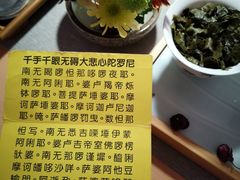 千手千眼无碍大悲心陀罗尼
南无喝啰怛那哆啰夜耶。
南无阿唎耶。婆卢羯帝烁
钵啰耶。菩提萨埵婆耶。
摩诃萨埵婆耶。摩诃迦卢尼迦
耶。唵。萨皤啰罚曳。数怛那
怛写。南无悉吉嘌埵伊蒙
阿唎耶。婆卢吉帝室佛啰楞
驮婆。南无那啰谨墀。醯唎
摩诃皤哆沙咩。萨婆阿他豆
输朋。阿逝孕。